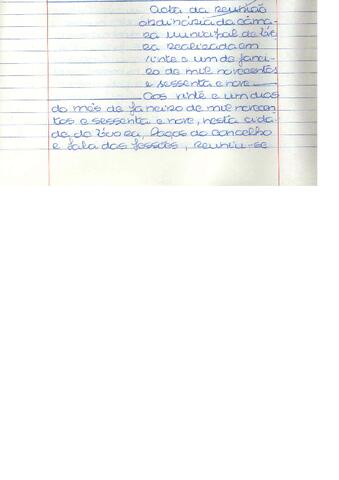 Acta da reunião
ordinária da câma-
ra municipal de Évo
ra realizada em
vinte e um de janei-
ro de mil novecentos
e sessenta e nove —
Aos vinte e um dias
do mês de janeiro de mil novecen
tos e sessenta e nove, nesta cida
de, de Évora, Paços do Concelho
e sala das sessões, reuniu-se